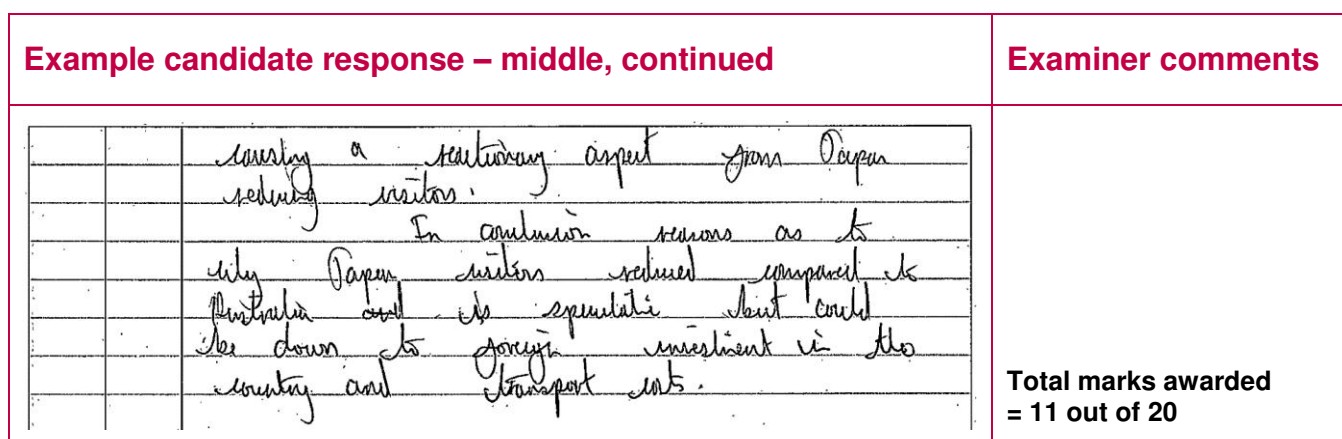 Example candidate response – middle, continued
Examiner comments
causing a reactionary aspect from Japan
reducing visitors.
In conclusion reasons as to
why Japan visitors reduced compared to
Australia and is speculati but could
be down to foreign investment in the
country and transport costs.
Total marks awarded
= 11 out of 20